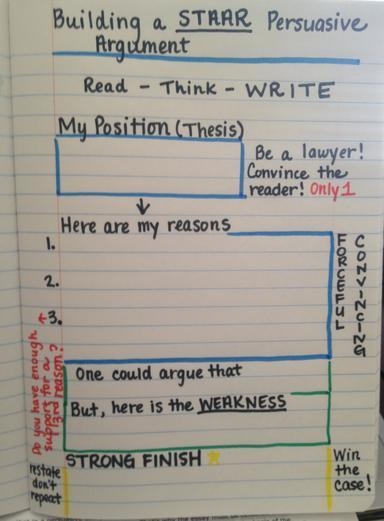 Building a STAAR Persuasive
Argument
Read - Think - WRITE
My Position (Thesis)
Be a lawyer!
Convince the
reader! Only 1
Here are my reasons
1.
2.
3.
FORCEFUL
CONVINCING
Do you have enough
support for a
3rd reason?
One could argue that
But, here is the WEAKNESS
STRONG FINISH
restate
don't
repeat
Win
the
case!